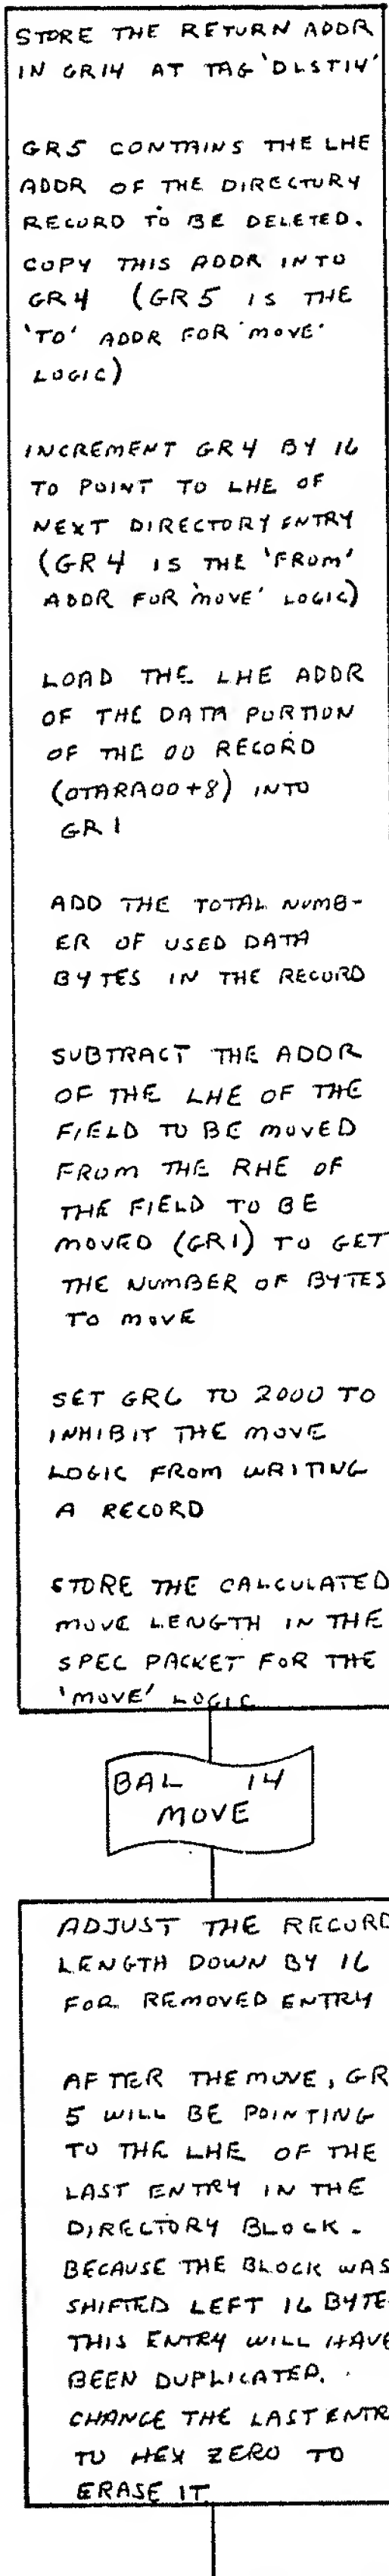 STORE THE RETURN ADDR
IN GR14 AT TAG 'DLST14'
GR5 CONTAINS THE LHE
ADDR OF THE DIRECTURY
RECORD TO BE DELETED.
COPY THIS ADDR INTO
GR4 (GR5 IS THE
'TO' ADDR FOR 'MOVE'
LOGIC)
INCREMENT GR4 BY 16
TO POINT TO LHE OF
NEXT DIRECTORY ENTRY
(GR4 IS THE 'FROM'
ADDR FOR 'MOVE' LOGIC)
LOAD THE LHE ADDR
OF THE DATA PORTION
OF THE 00 RECORD
(OTARA00+8) INTO
GR1
ADD THE TOTAL NUMB-
ER OF USED DATA
BYTES IN THE RECORD
SUBTRACT THE ADDR
OF THE LHE OF THE
FIELD TO BE MOVED
FROM THE RHE OF
THE FIELD TO BE
MOVED (GR1) TO GET
THE NUMBER OF BYTES
TO MOVE
SET GR6 TO 2000 TO
INHIBIT THE MOVE
LOGIC FROM WRITING
A RECORD
STORE THE CALCULATED
MOVE LENGTH IN THE
SPEC PACKET FOR THE
'MOVE' LOGIC
BAL 14
MOVE
ADJUST THE RECORD
LENGTH DOWN BY 16
FOR REMOVED ENTRY
AFTER THE MOVE, GR
5 WILL BE POINTING
TO THE LHE OF THE
LAST ENTRY IN THE
DIRECTORY BLOCK.
BECAUSE THE BLOCK WAS
SHIFTED LEFT 16 BYTE
THIS ENTRY WILL HAVE
BEEN DUPLICATED.
CHANGE THE LAST ENTR
TO HEX ZERO TO
ERASE IT